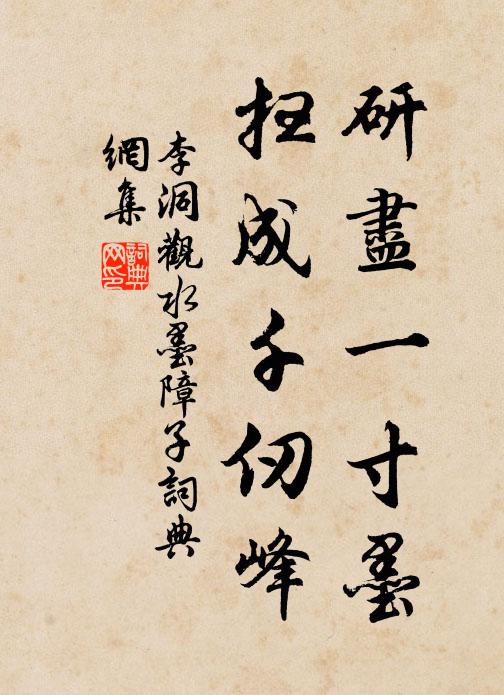 研盡一寸墨
扫成千仞峰
李洞觀水墨障子詞典
網集
詞典
网印